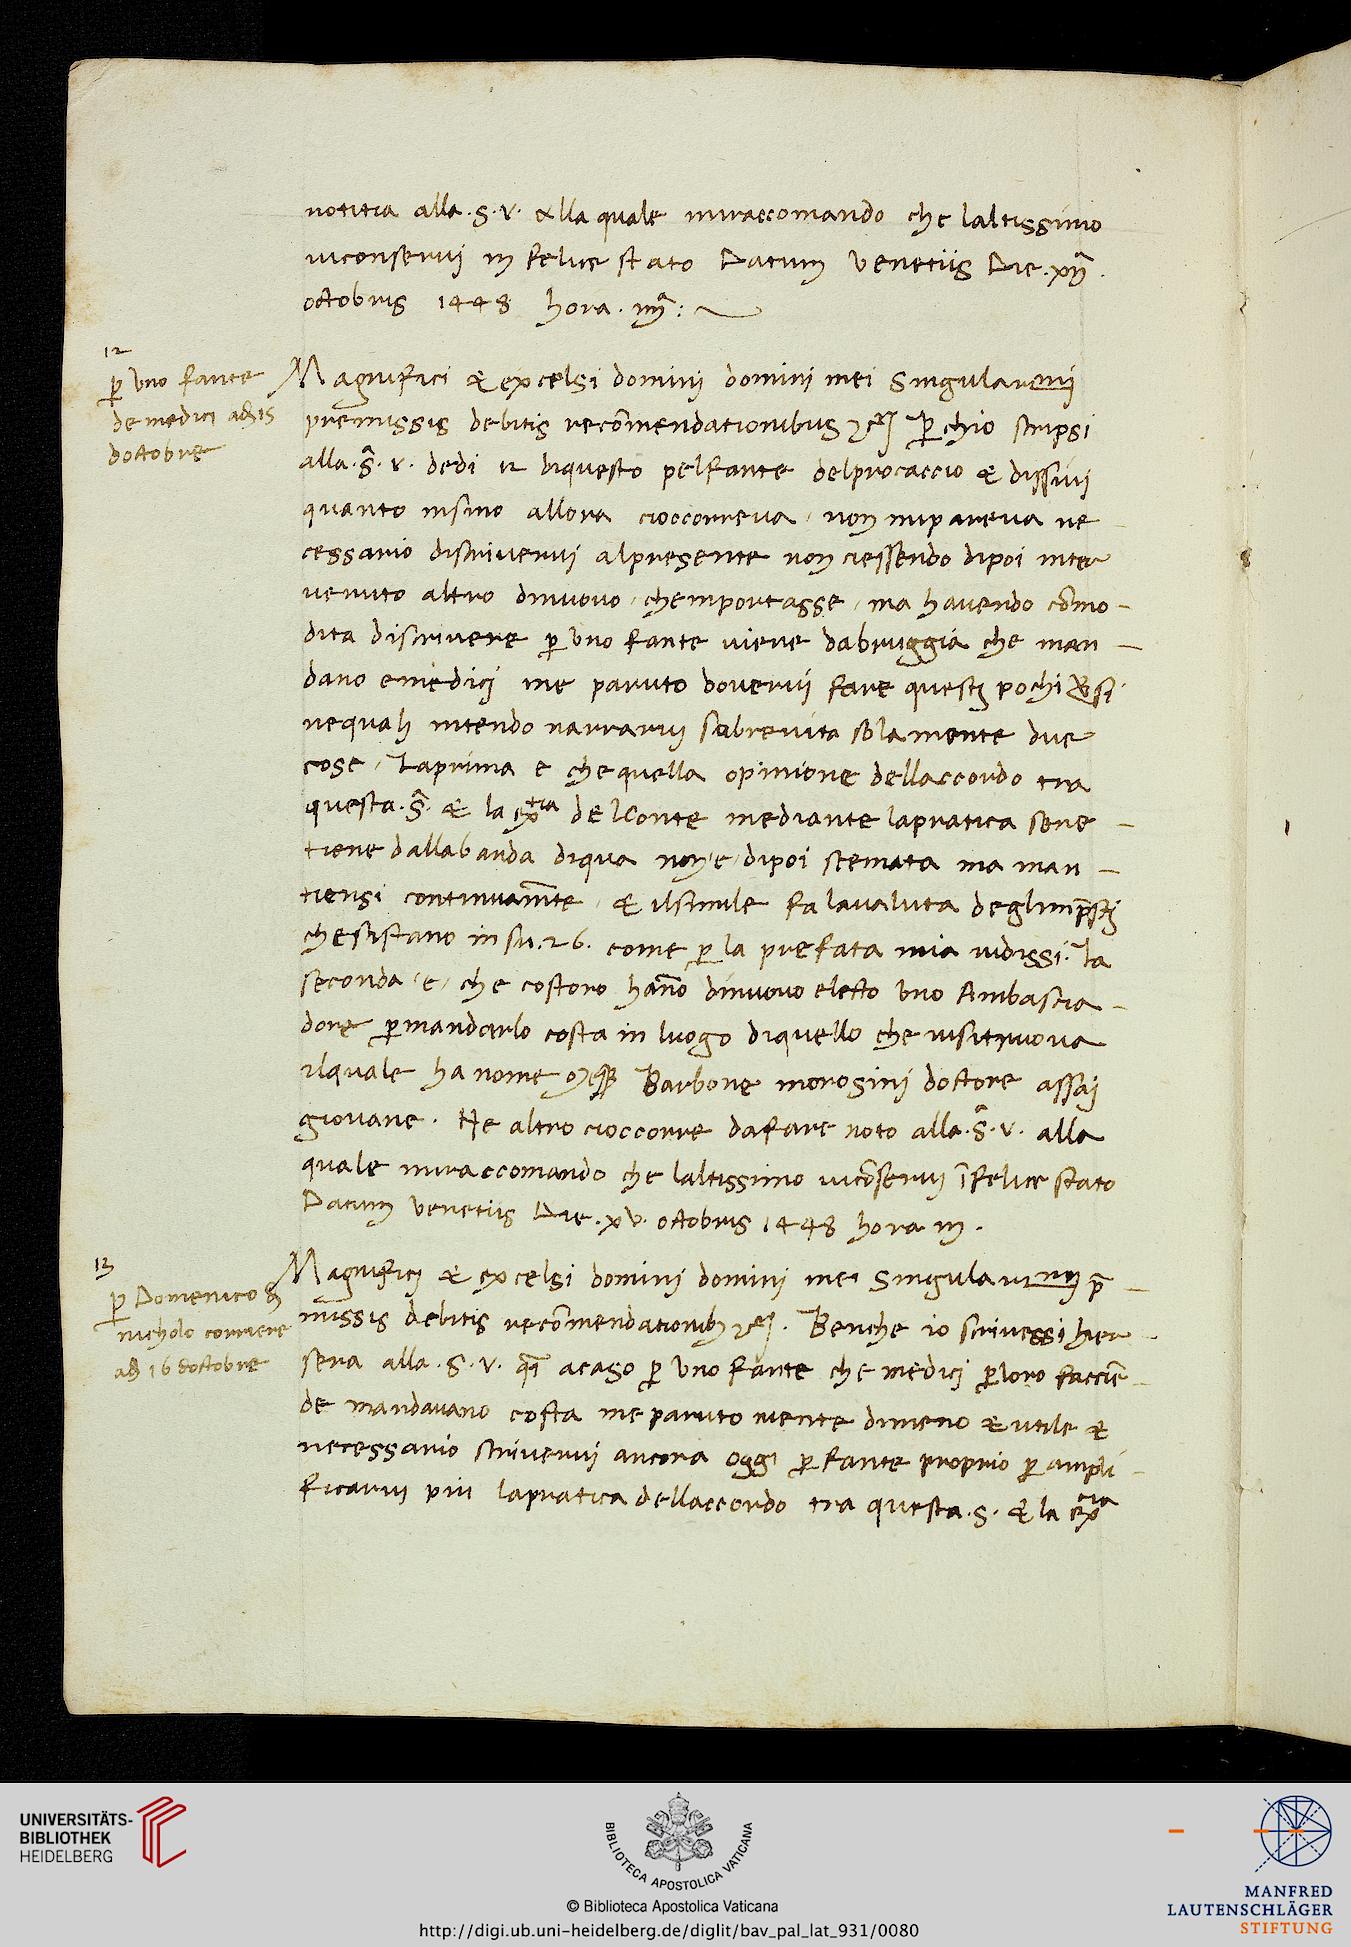 notitia alla .S.V. alla quale miraccomando che laltissimo
viconservi in felice stato Datum Venetiis Die .xij
octobris 1448 hora .iiijª:
12
p̲ uno fante
de medici adi 15
doctobre
Magnifici & excelsi domini domini mei Singularenij
premissis debitis recōmendationibus & Perchio scripsi
alla .S̄.V. dedi 12 diquesto pelfante delprocaccio & dissivi
quanto insino allora cioccorreva, non mipareva ne
cessario discrivervi alpresente non ciessendo dipoi inter
venuto altro dinuovo, cheinportasse, ma havendo cōmo-
dita discrivere p̲ uno fante viene dabruggia che man-
dano emedicj me paruto dovervi fare questj pochi versi
nequali intendo narrarvi subrevita solamente due
cose, Laprima e chequella opinione dellaccordo tra
questa .S̄. & la exᵗⁱᵃ delConte mediante lapratica sene-
tiene dallabanda diqua non e, dipoi stemata ma man-
tiensi continuamēte, & ilsimile fa lavaluta deglimp̄stj
chesistano in su .26. come p̲ la prefata mia vidissi. La
seconda, e, che costoro hāno dinuovo electo uno Ambascia-
dore p̲mandarlo costa in luogo diquello che visitruova
ilquale ha nome Barbone morosinj doctore assaj
giovane. Ne altro cioccorre dafare noto alla .S̄.V. alla
quale miraccomando che laltissimo vicōservi ī felice stato
Datum Venetiis Die .xv. octobris 1448 hora iij.
13
p̲ Domenico di
nicholo corriere
adi 16 doctobre
Magnificj & excelsi dominj dominj mei Singularinij p̄-
missis debitis recōmendationib; &. Benche io scrivessi hier-
sera alla .S.V. acaso p̲ uno fante che medicj p̲loro facciē-
de mandavano costa me paruto niente dimeno & utile &
necessario scrivervi ancora oggi p̲ fante proprio p̲ ampli-
ficarvi piu lapratica dellaccordo tra questa .S. & la exᶜⁱᵃ
UNIVERSITÄTS-
BIBLIOTHEK
HEIDELBERG
BIBLIOTECA APOSTOLICA VATICANA
© Biblioteca Apostolica Vaticana
http://digi.ub.uni-heidelberg.de/diglit/bav_pal_lat_931/0080
MANFRED
LAUTENSCHLÄGER
STIFTUNG